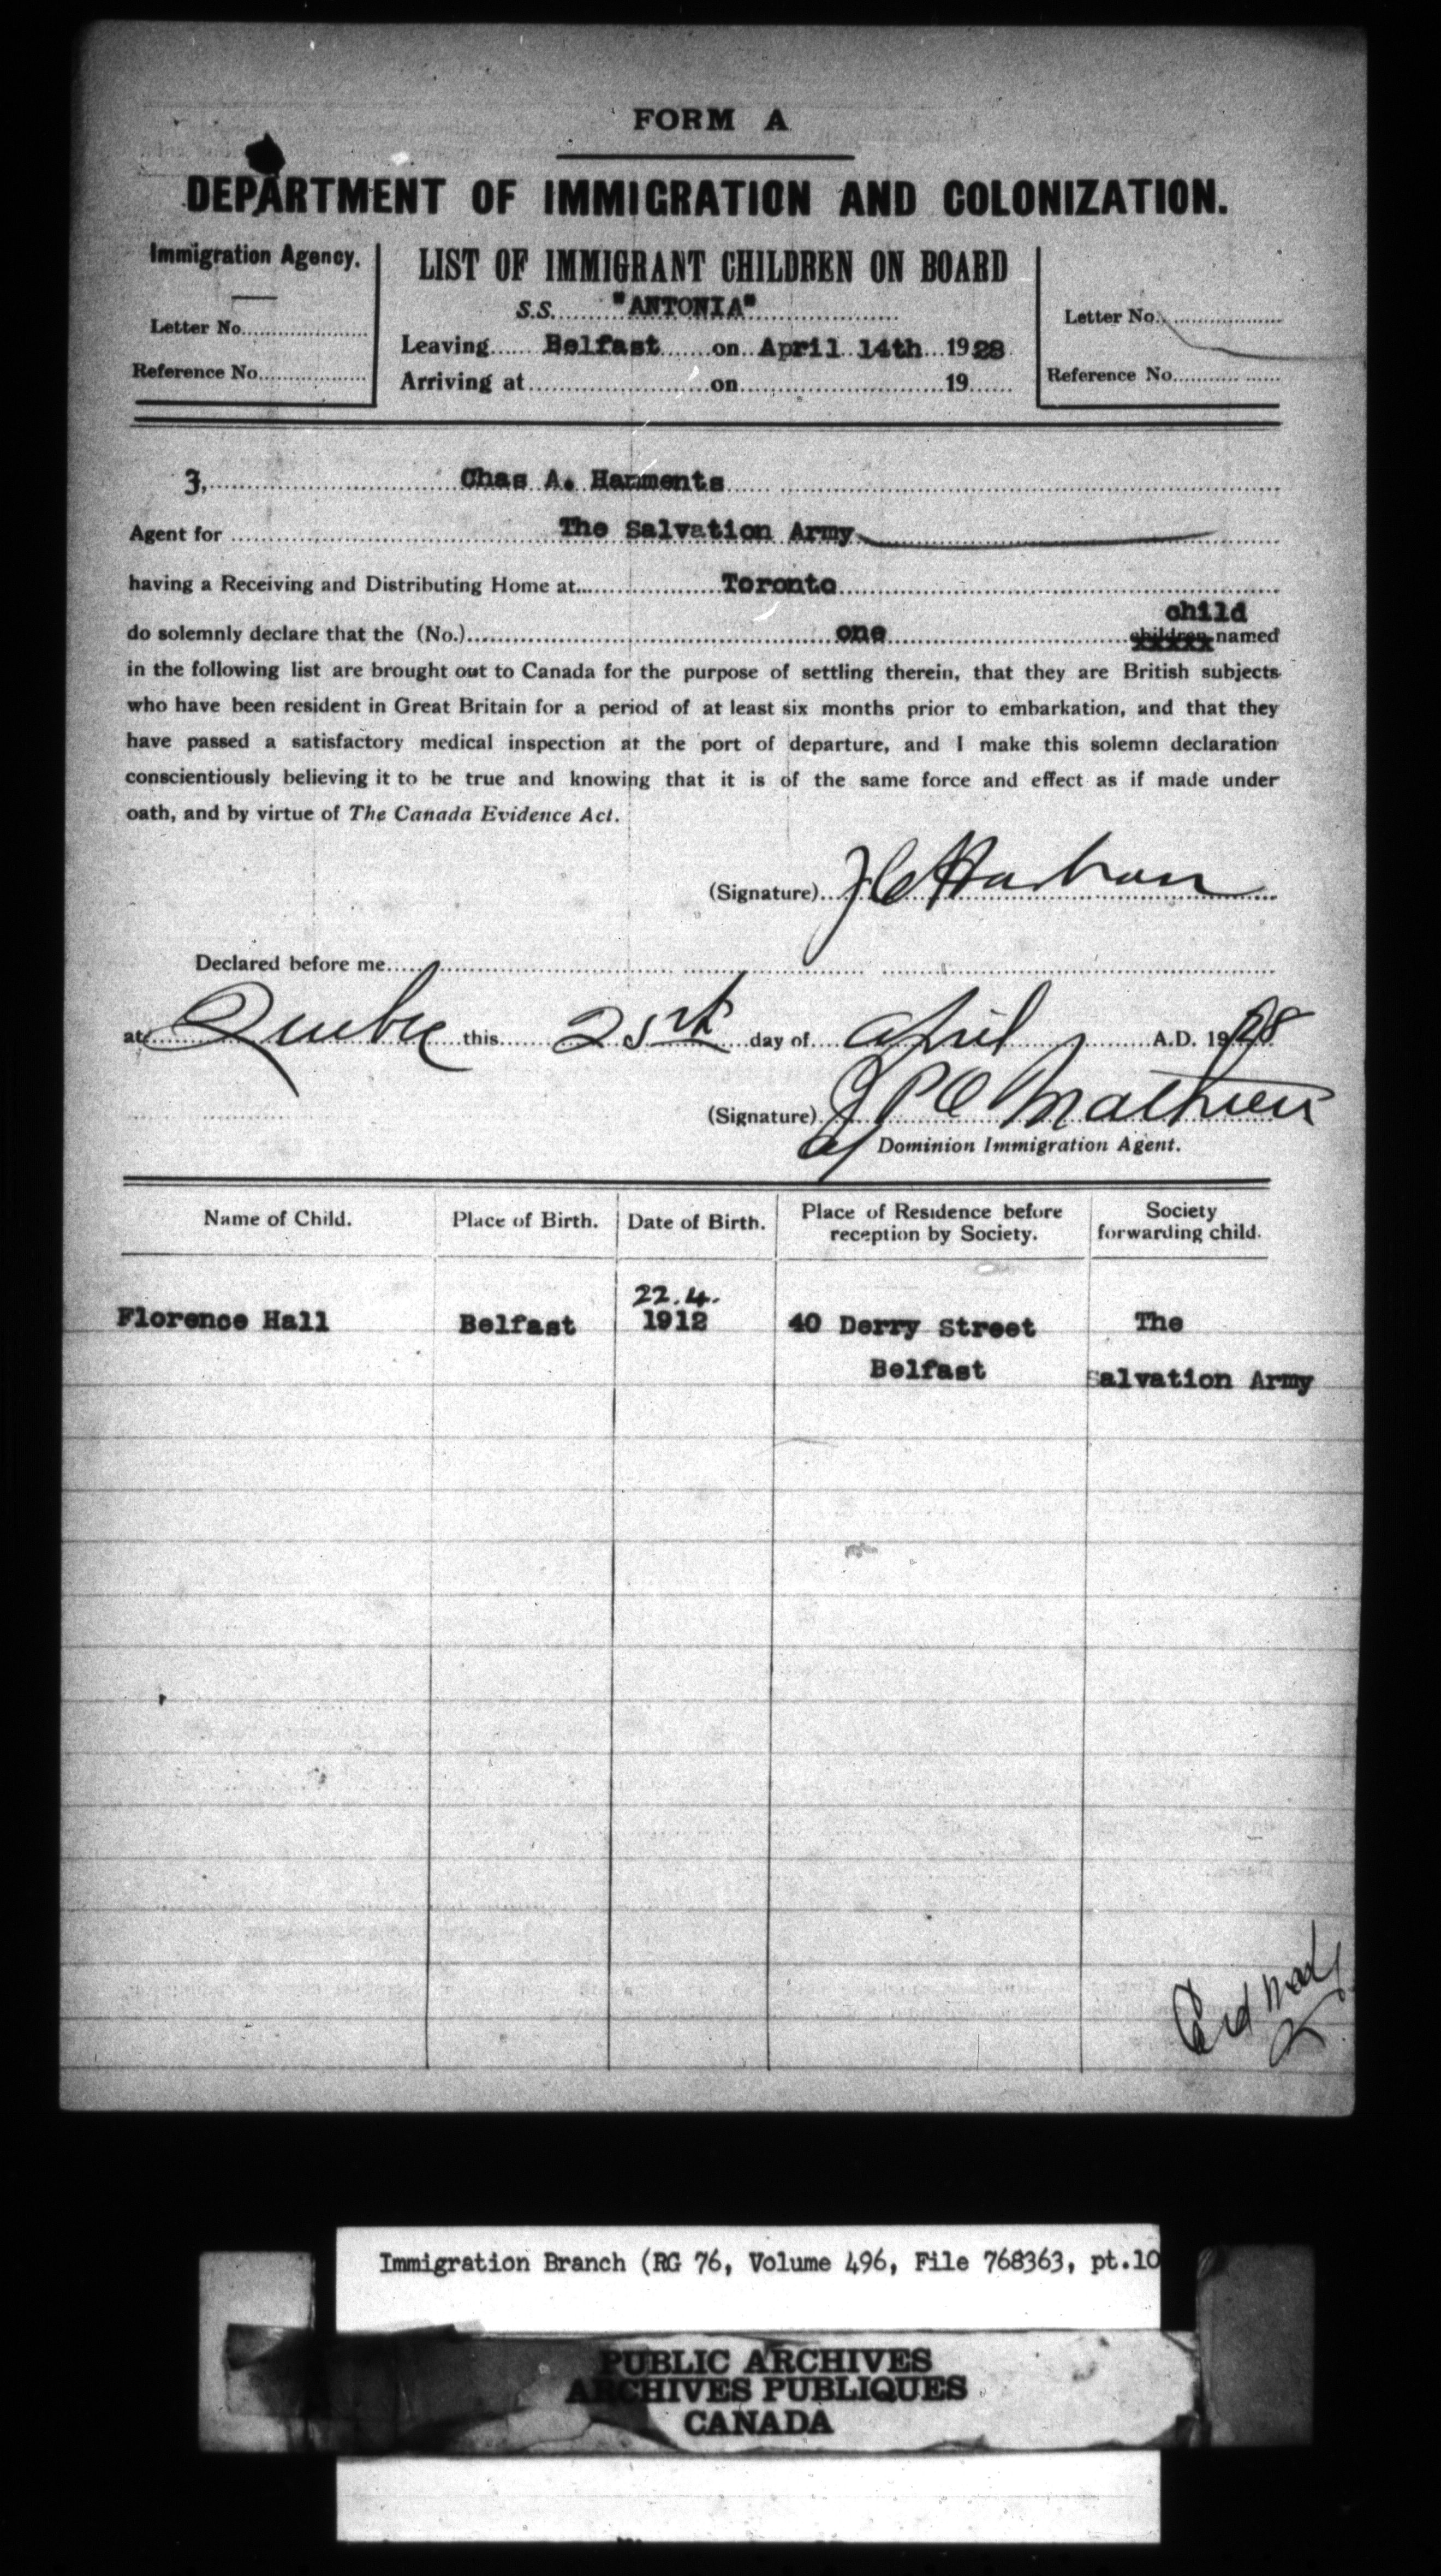 FORM A
DEPARTMENT OF IMMIGRATION AND COLONIZATION.
Immigration Agency.
Letter No.
Reference No.
LIST OF IMMIGRANT CHILDREN ON BOARD
S.S. "ANTONIA"
Leaving Belfast on April 14th 1928
Arriving at on 19
Letter No.
Reference No.
I, Chas A. Harments
Agent for The Salvation Army
having a Receiving and Distributing Home at Toronto
child
do solemnly declare that the (No.) one children named
in the following list are brought out to Canada for the purpose of settling therein, that they are British subjects
who have been resident in Great Britain for a period of at least six months prior to embarkation, and that they
have passed a satisfactory medical inspection at the port of departure, and I make this solemn declaration
conscientiously believing it to be true and knowing that it is of the same force and effect as if made under
oath, and by virtue of The Canada Evidence Act.
(Signature)
Declared before me
at Quebec this day of April A.D. 1928
(Signature) J P C Mathieu
Dominion Immigration Agent.
Name of Child. Place of Birth. Date of Birth. Place of Residence before reception by Society. Society forwarding child.
22.4.
Florence Hall Belfast 1912 40 Derry Street The
Belfast Salvation Army
Immigration Branch (RG 76, Volume 496, File 768363, pt.10
PUBLIC ARCHIVES
ARCHIVES PUBLIQUES
CANADA